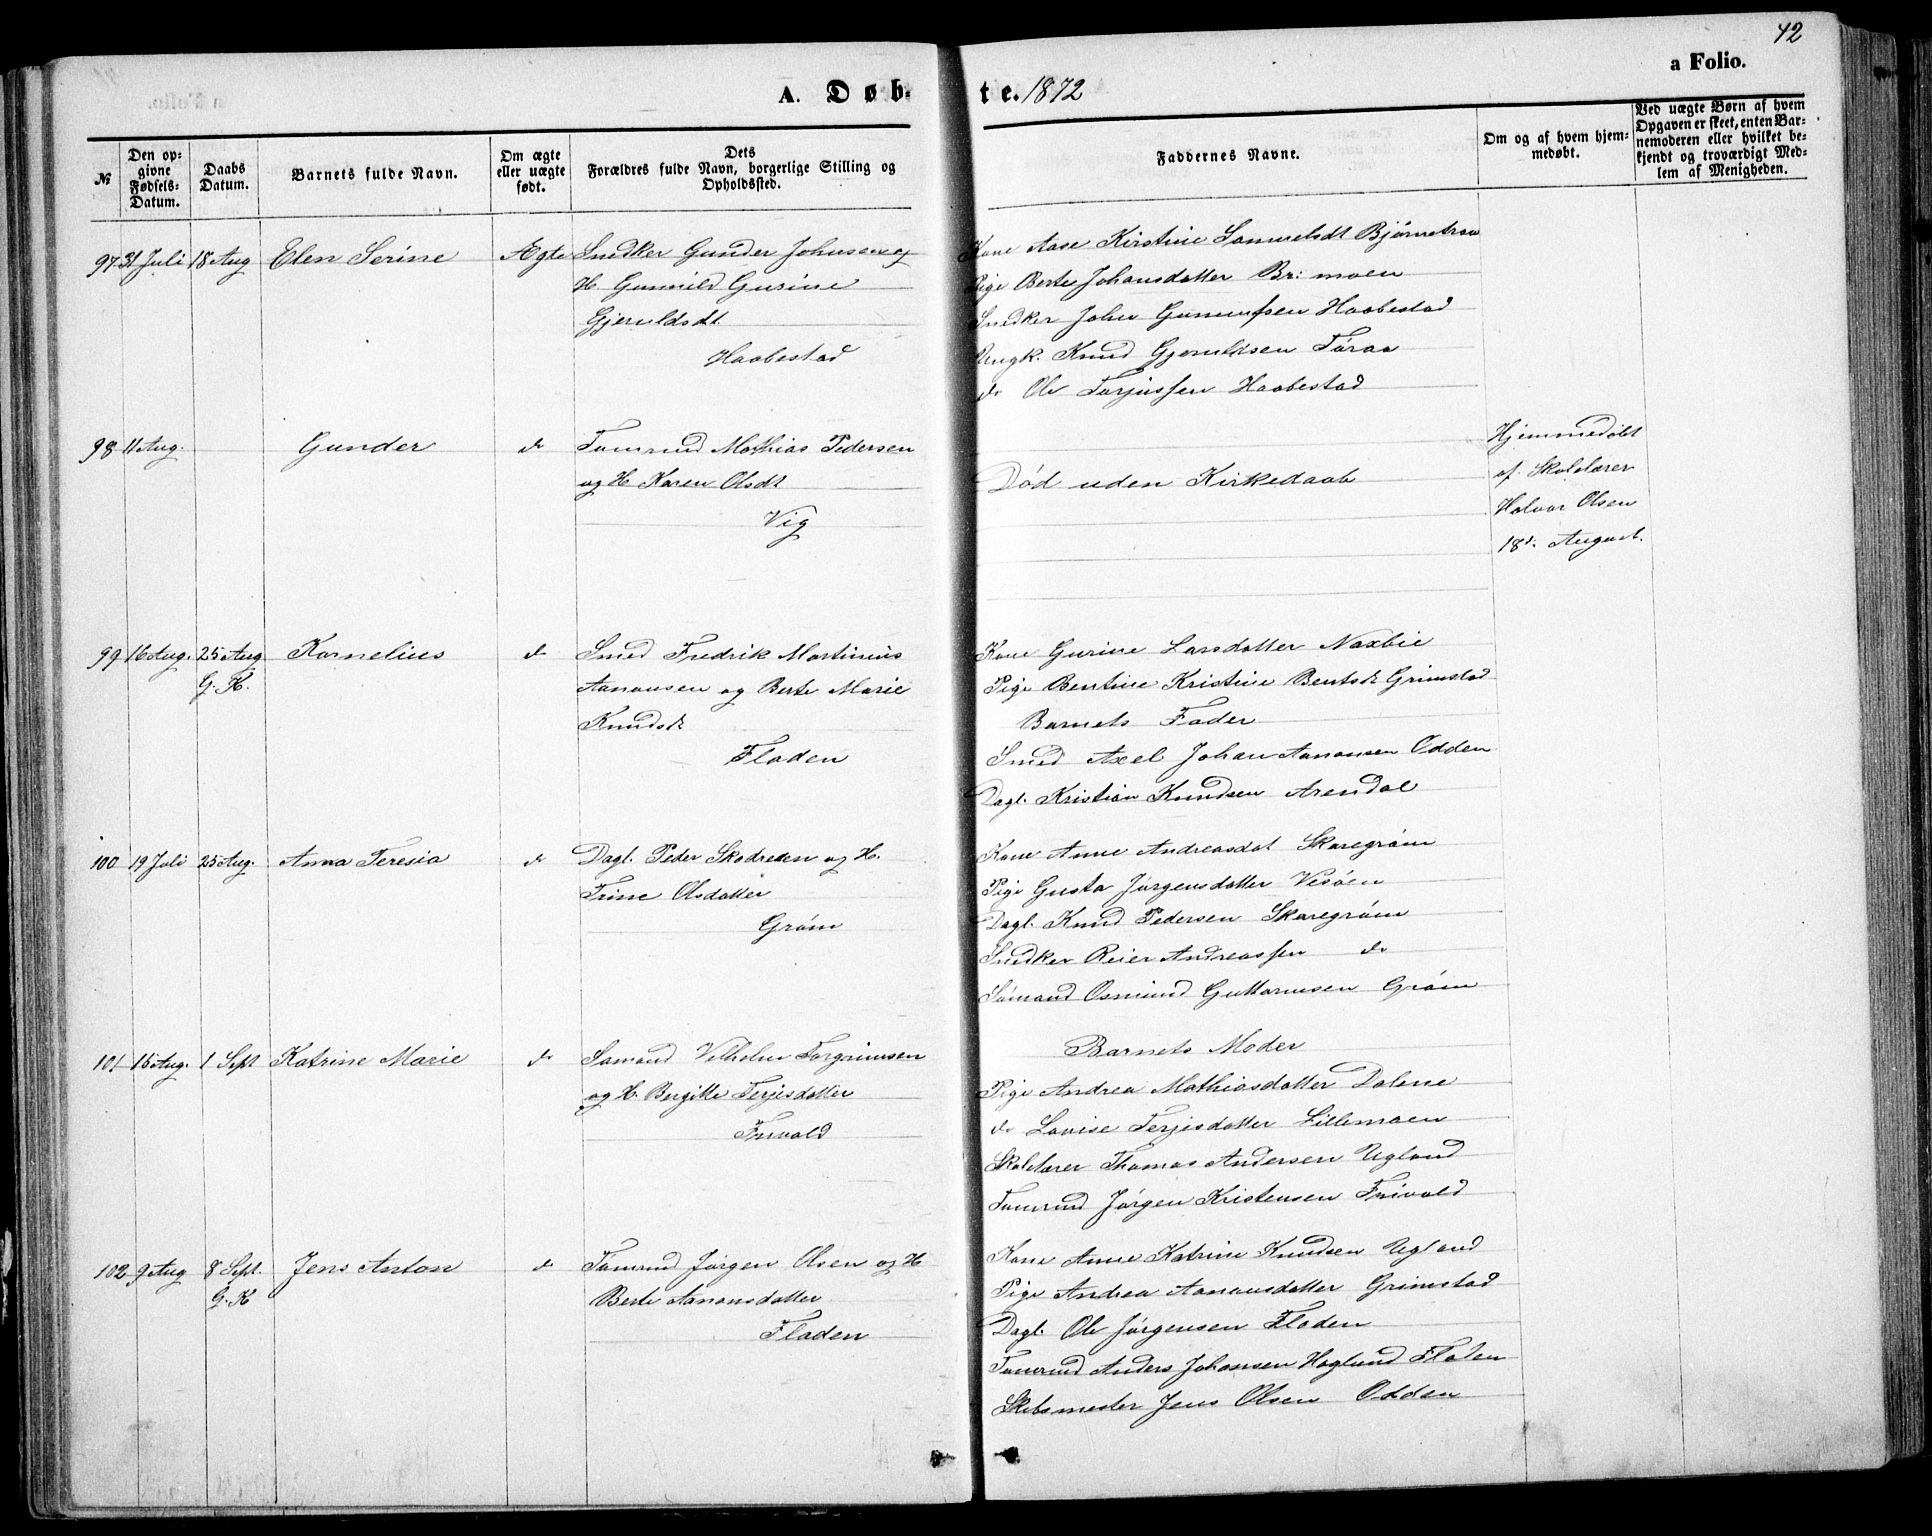 42
a Folio.
A. Døb-
te. 1872
№
Den op-
givne
Fødsels-
Datum.
Daabs
Datum.
Barnets fulde Navn.
Om ægte
eller uægte
født.
Dets
Forældres fulde Navn, borgerlige Stilling og
Opholdssted.
Faddernes Navne.
Om og af hvem hjem-
medøbt.
Ved uægte Børn af hvem
Opgaven er skeet, enten Bar-
nemoderen eller hvilket be-
kjendt og troværdigt Med-
lem af Menigheden.
97 31 Juli 18 Aug Elen Serine Ægte Snedker Gunder Johnsen og
H. Gunnild Gurine
Gjeruldsdt
Haabestad
Kone Aase Kirstine Samuelsdt Bjørnetraa
Pige Berte Johansdatter Br: moen
Snedker John Haabestad
Ungk. Knud Gjeruldsen Føraa
do Ole Torjussen Haabestad
98 11 Aug. Gunder do Tømrmd Mathias Pedersen
og H. Karen Olsdt
Vig
Død uden Kirkedaab
Hjemmedøbt
af Skolelærer
Halvor Olsen
18d. August.
99 16 Aug. 25 Aug Kornelius do Smed Fredrik Martinius
G. K. Aanonsen og Berte Marie
Knudsd.
Fladen
Kone Gurine Larsdatter Naxbie
Pige Bentine Kristine Bentsd. Grimstad
Barnets Fader
Smed Axel Johan Aanonsen Odden
Dagl. Kristian Knudsen Arendal
100 19 Juli 25 Aug. Anna Teresia do Dagl. Peder Skodresen og H.
Trine Olsdatter
Grøm
Kone Anne Andreasdat Skaregrøm
Pige Gusta Jørgensdatter Vesøen
Dagl. Knud Pedersen Skaregrøm
Snedker Reier Andreassen do
Sømand Osmund Guttormsen Grøm
101 15 Aug. 1 Sept Katrine Marie do Sømand Vilhelm Torgrimsen
og H. Bergitte Terjesdatter
Frivold
Barnets Moder
Pige Andrea Mathiasdatter Dalene
do Lovise Terjesdatter Lillemoen
Skolelærer Thomas Andersen Ugland
Tømrmd Jørgen Kristensen Frivold
102 9 Aug 8 Sept. Jens Anton do Tømrmd Jørgen Olsen og H
G. K Berte Aanonsdatter
Fladen
Kone Anne Katrine Knudsen Ugland
Pige Andrea Aanonsdatter Grimstad
Dagl. Ole Jørgensen Fladen
Tømrmd Anders Johansen Haglund Fladen
Skibsmester Jens Olsen Odden